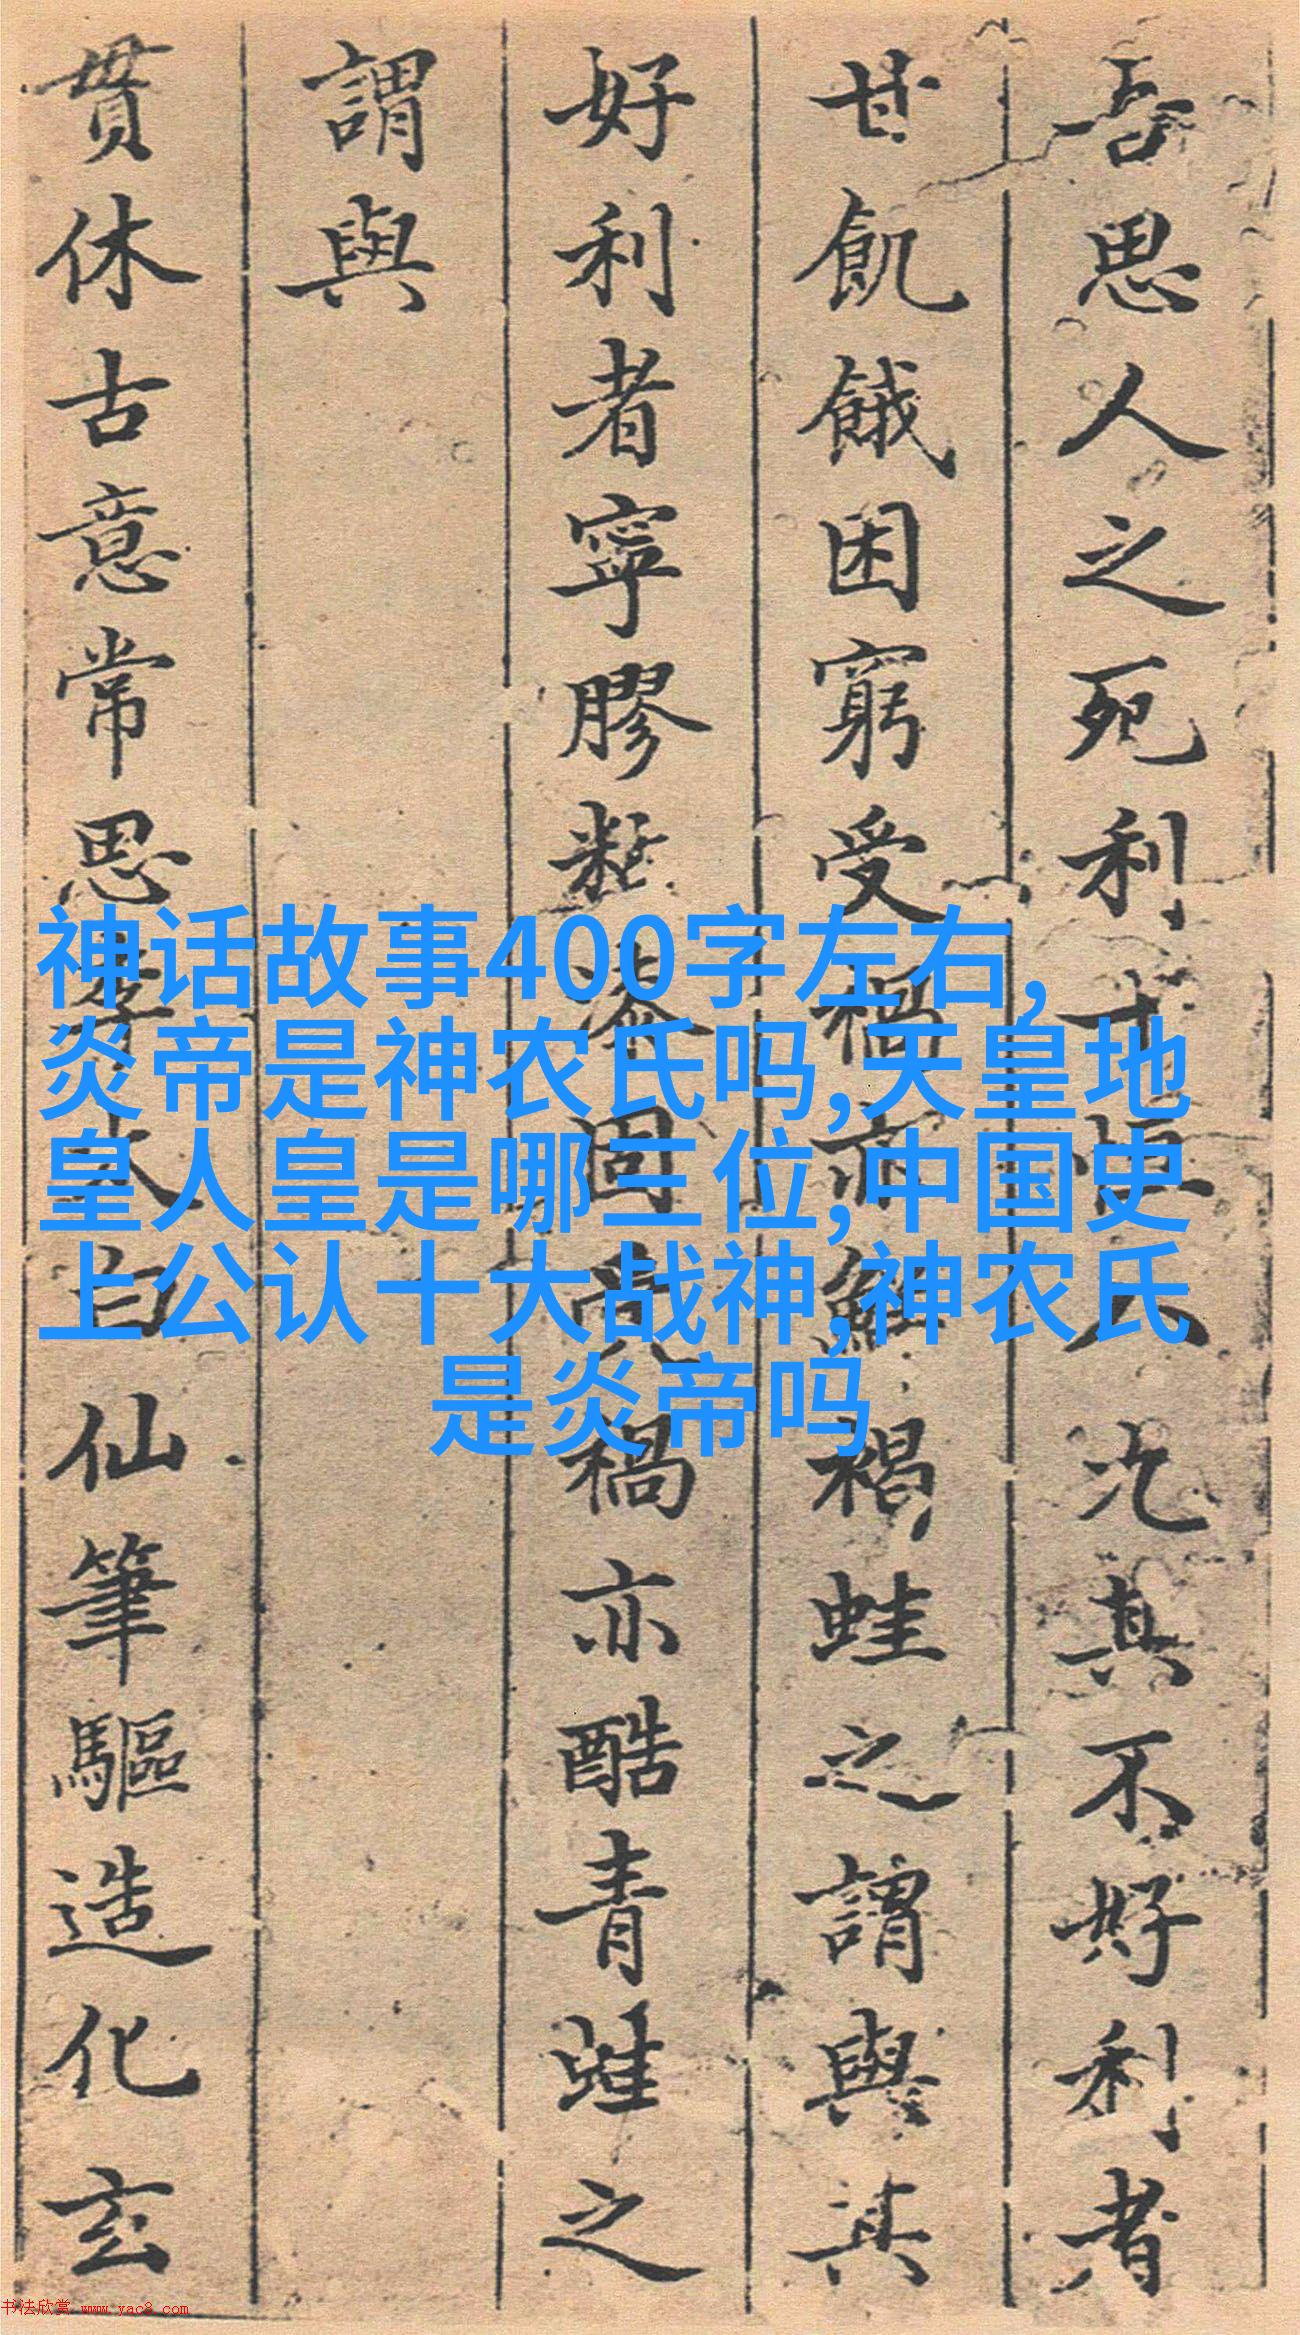 吾思人之死利十恒況其不好利者
甘飢餓困窮受禍亦鮮褐蛙之謂與其
好利者寧膠黏漆固禍亦酷青蛙之
謂與
貫休古意常思李太白仙筆驅造化玄
神话故事400字左右,
炎帝是神农氏吗,天皇地
皇人皇是哪三位,中国史
上公认十大战神,神农氏
是炎帝吗
书法欣赏 www.yac8.com